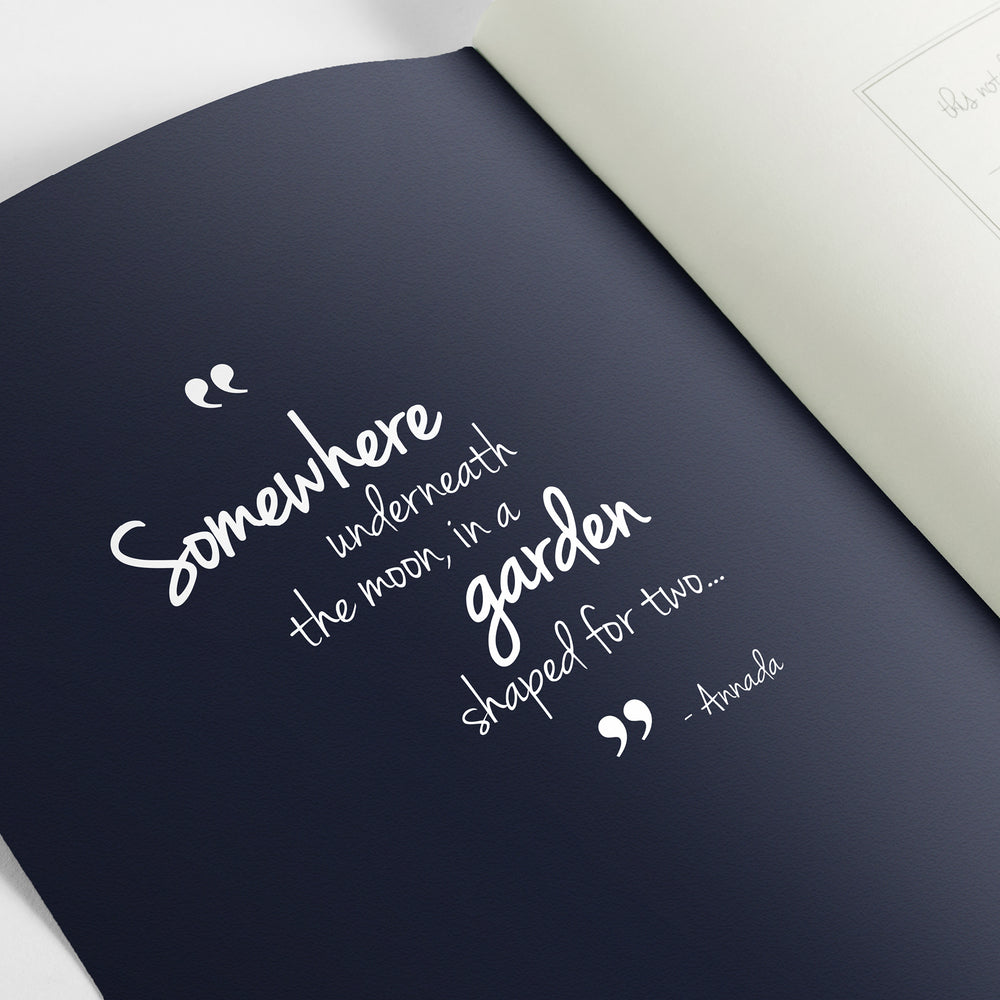 “
Somewhere
underneath
the moon, in a
garden
shaped for two...
”
- Annada
this not